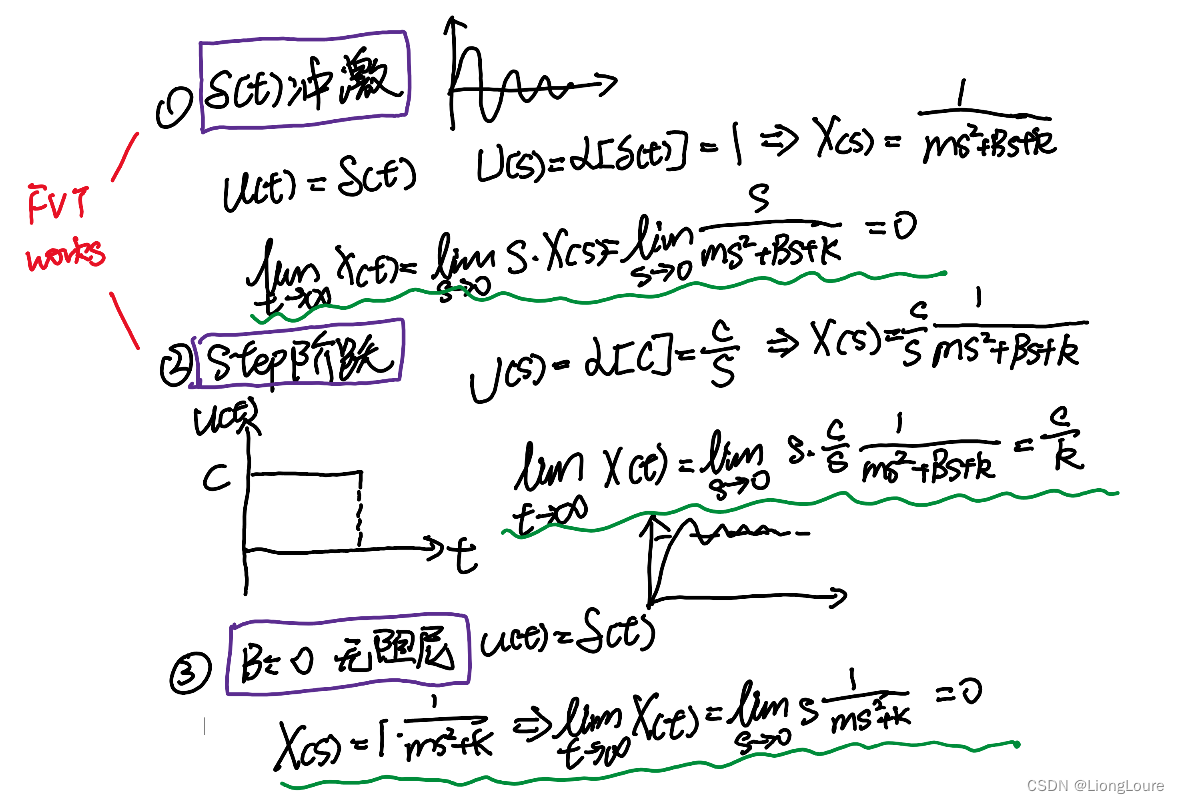 ① δ(t)冲激
U(s)=L[δ(t)]=1 ⇒ X(s)=1/(ms²+Bs+k)
u(t)=δ(t)
FVT
works
lim t→∞ X(t)=lim s→0 s·X(s)=lim s→0 s/(ms²+Bs+k)=0
② Step阶跃
U(s)=L[C]=C/S ⇒ X(s)=C/S 1/(ms²+Bs+k)
u(t)
C
t
lim t→∞ X(t)=lim s→0 s·C/S 1/(ms²+Bs+k)=C/k
③ B=0 无阻尼 u(t)=δ(t)
X(s)=1·1/(ms²+k) ⇒ lim t→∞ X(t)=lim s→0 s 1/(ms²+k)=0
CSDN @LiongLoure